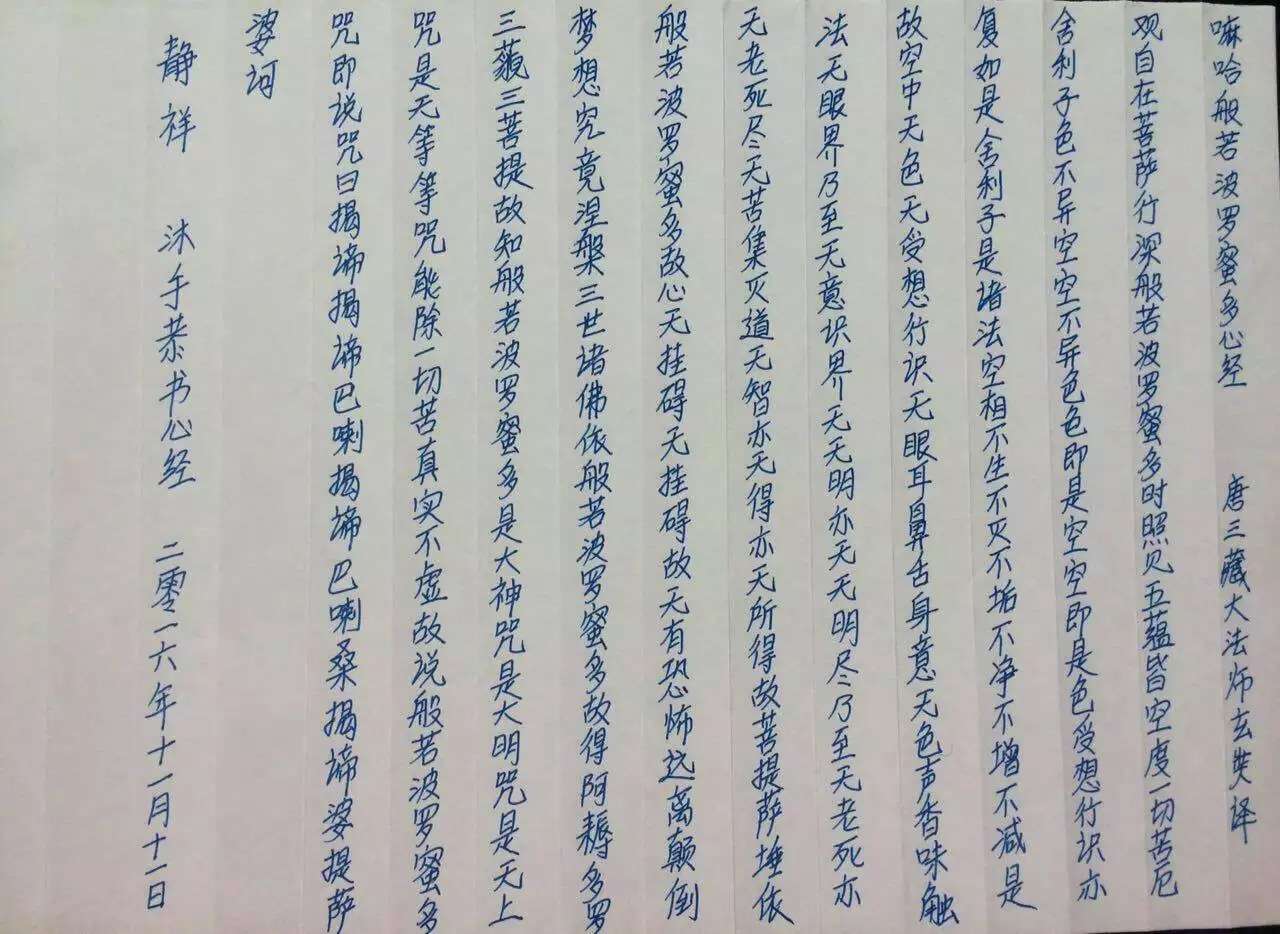 嘛哈般若波罗蜜多心经 唐三藏大法师玄奘译
观自在菩萨行深般若波罗蜜多时照见五蕴皆空度一切苦厄
舍利子色不异空空不异色色即是空空即是色受想行识亦
复如是舍利子是诸法空相不生不灭不垢不净不增不减是
故空中无色无受想行识无眼耳鼻舌身意无色声香味触
法无眼界乃至无意识界无无明亦无无明尽乃至无老死亦
无老死尽无苦集灭道无智亦无得亦无所得故菩提萨埵依
般若波罗蜜多故心无挂碍无挂碍故无有恐怖远离颠倒
梦想究竟涅槃三世诸佛依般若波罗蜜多故得阿耨多罗
三藐三菩提故知般若波罗蜜多是大神咒是大明咒是无上
咒是无等等咒能除一切苦真实不虚故说般若波罗蜜多
咒即说咒曰揭谛揭谛巴喇揭谛巴喇桑揭谛婆提萨
婆诃
静祥 沐手恭书心经 二零一六年十一月十二日